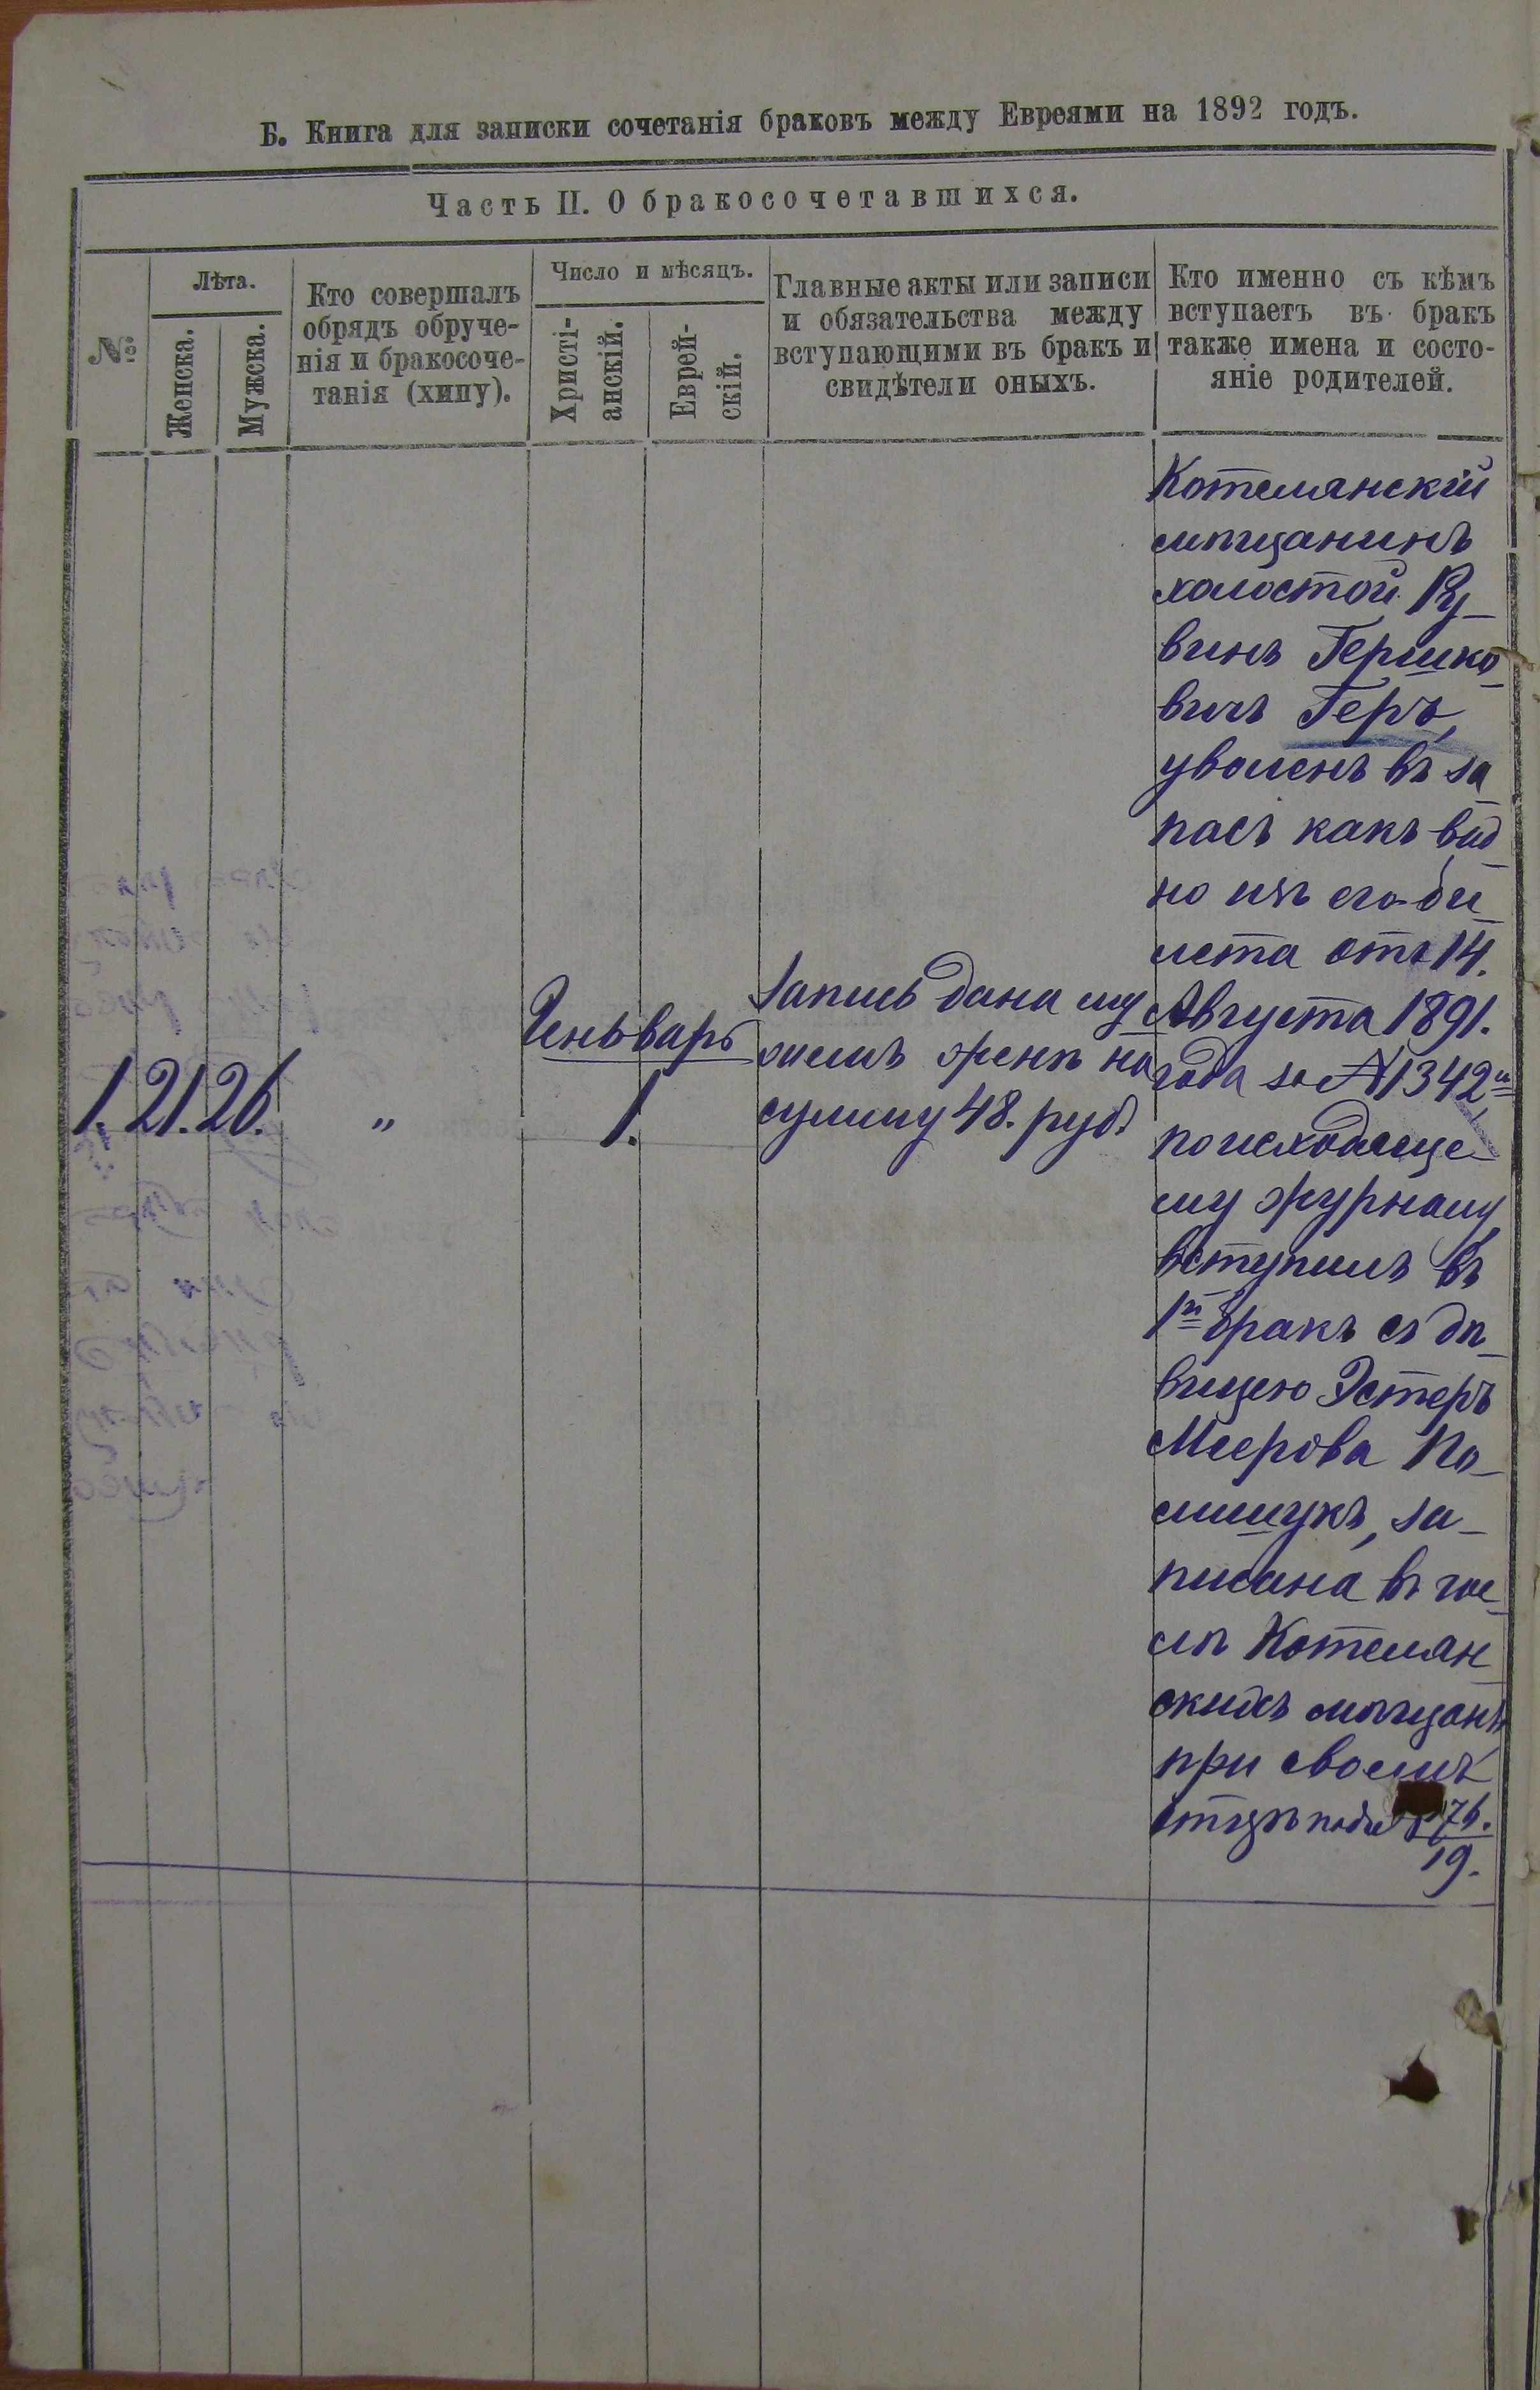 Б. Книга для записки сочетанія браковъ между Евреями на 1892 годъ.
Часть II. О бракосочетавшихся.
№
Лѣта.
Женска.
Мужска.
Кто совершалъ
обрядъ обруче-
нія и бракосоче-
танія (хипу).
Число и мѣсяцъ.
Христі-
анскій.
Еврей-
скій.
Главные акты или записи
и обязательства между
вступающими въ бракъ и
свидѣтели оныхъ.
Кто именно съ кѣмъ
вступаетъ въ бракъ
также имена и состо-
яніе родителей.
1. 21. 26. „
Іеньварь
1.
Запись дана му
жемъ женѣ на
сумму 48. руб.
Котелянскій
мѣщанинъ
холостой Ру
винъ Гершко
вичъ Геръ,
уволенъ въ за
пасъ какъ вид
но изъ его би
лета отъ 14.
Августа 1891.
года за № 1342
по исходяще
му журналу
вступилъ въ
1й бракъ съ дѣ
вицею Эстеръ
Меерова По-
лищукъ, за-
писана въ чи
слѣ Котелян
скихъ мѣщанъ
при своемъ
отцѣ под 76.
19.